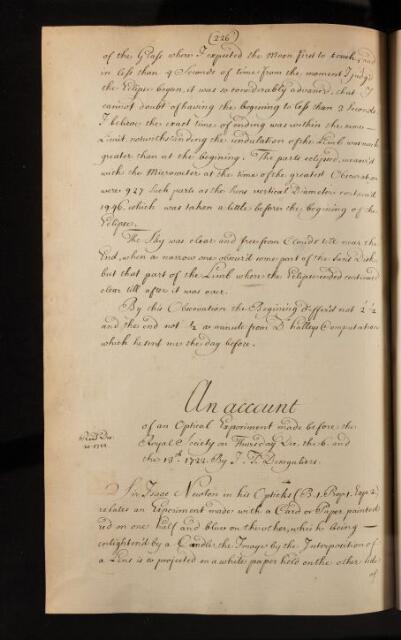 (226)
of the Glass where I expected the Moon first to touch, and
in less than 4 Seconds of time from the moment I judg'd
the Eclipse began, it was so considerably advanced, that I
cannot doubt of having the begining to less than 2 Seconds
I believe the exact time of ending was within the same
Limit notwithstanding the undulation of the Limb was much
greater than at the begining. The parts eclipsed, measur'd
with the Micrometer at the time of the greatest Obscuration
were 927 such parts as the Suns vertical Diameter contain'd
1946, which was taken a little before the begining of the
Eclipse.
The Sky was clear and free from Clouds till near the
End, when a narrow one obscur'd some part of the Suns Disk
but that part of the Limb where the Eclipse ended continued
clear till after it was over.
By this Observation the Begining differ'd not 2 ½
and the end not ½ a minute from Dr. Halleys Computation
which he sent me the day before.
An account
of an Optical Experiment made before the
Royal Society on Thursday Dec. the 6. and
the 13th. 1722. By J. T. Desaguliers.
Read Dec.
1722.
Sir Isaac Newton in his Opticks (B. 1. Exp. 2)
relates an Experiment made with a Card or Paper painted
red on one half and blue on the other, which being
enlighten'd by a Candle, the Image by the Interposition of
a Lens is so projected on a white paper held on the other side
of